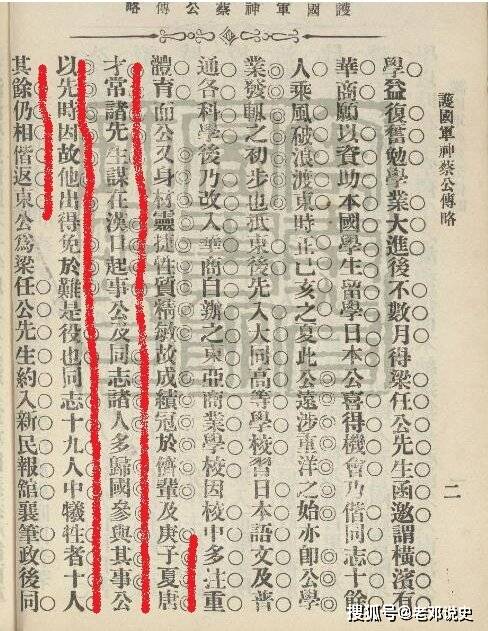 護國軍神蔡公傳略
護國軍神蔡公傳略
二
學益復奮勉學業大進後不數月得梁任公先生函邀謂橫濱有
華商願以資助本國學生留學日本公喜得機會乃偕同志十餘
人乘風破浪渡東時正己亥之夏此公遠涉重洋之始亦卽公學
業發軔之初步也抵東後先入大同高等學校習日本語文及普
通各科學後乃改入華商自辦之東亞商業學校因校中多注重
體育而公又身材靈捷性質精敏故成績冠於儕輩及庚子夏唐
才常諸先生謀在漢口起事公及同志諸人多歸國參與其事公
以先時因故他出得免於難是役也同志十九人中犧牲者十人
其餘仍相偕返東公爲梁任公先生約入新民報館襄筆政後同
搜狐号@老邓说史